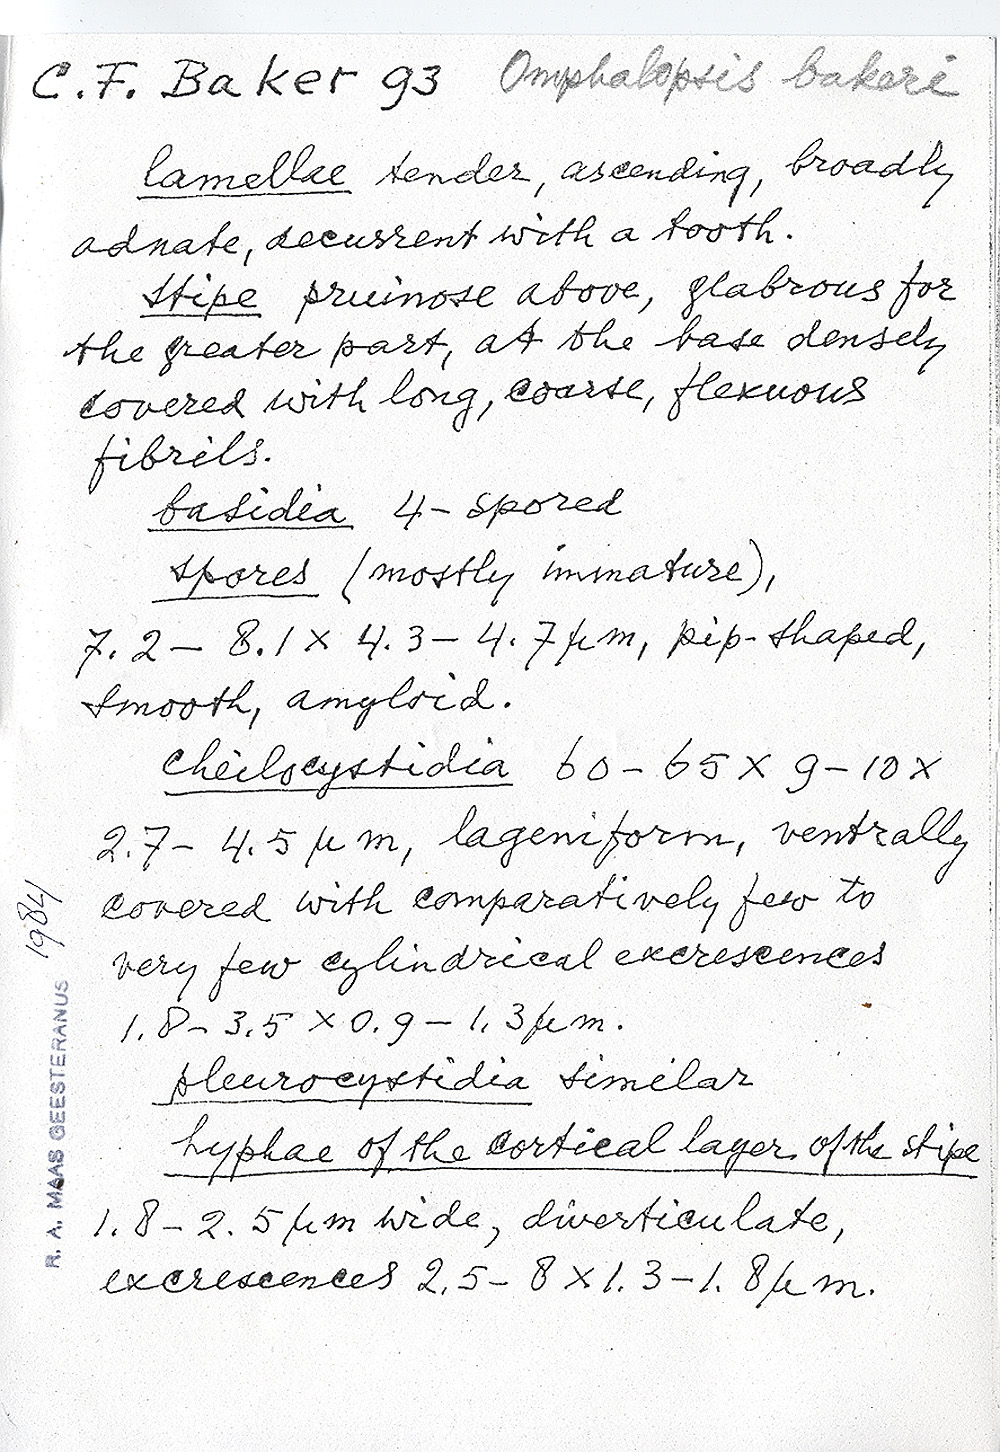 C.F. Baker 93 Omphalopsis bakeri
lamellae tender, ascending, broadly
adnate, decurrent with a tooth.
stipe pruinose above, glabrous for
the greater part, at the base densely
covered with long, coarse, flexuous
fibrils.
basidia 4-spored
spores (mostly immature),
7.2 – 8.1 x 4.3 – 4.7 µm, pip-shaped,
smooth, amyloid.
cheilocystidia 60 – 65 x 9 – 10 x
2.7 – 4.5 µm, lageniform, ventrally
covered with comparatively few to
very few cylindrical excrescences
1.8 – 3.5 x 0.9 – 1.3 µm.
pleurocystidia similar
hyphae of the cortical layer of the stipe
1.8 – 2.5 µm wide, diverticulate,
excrescences 2.5 – 8 x 1.3 – 1.8 µm.
R. A. MAAS GEESTERANUS 1984